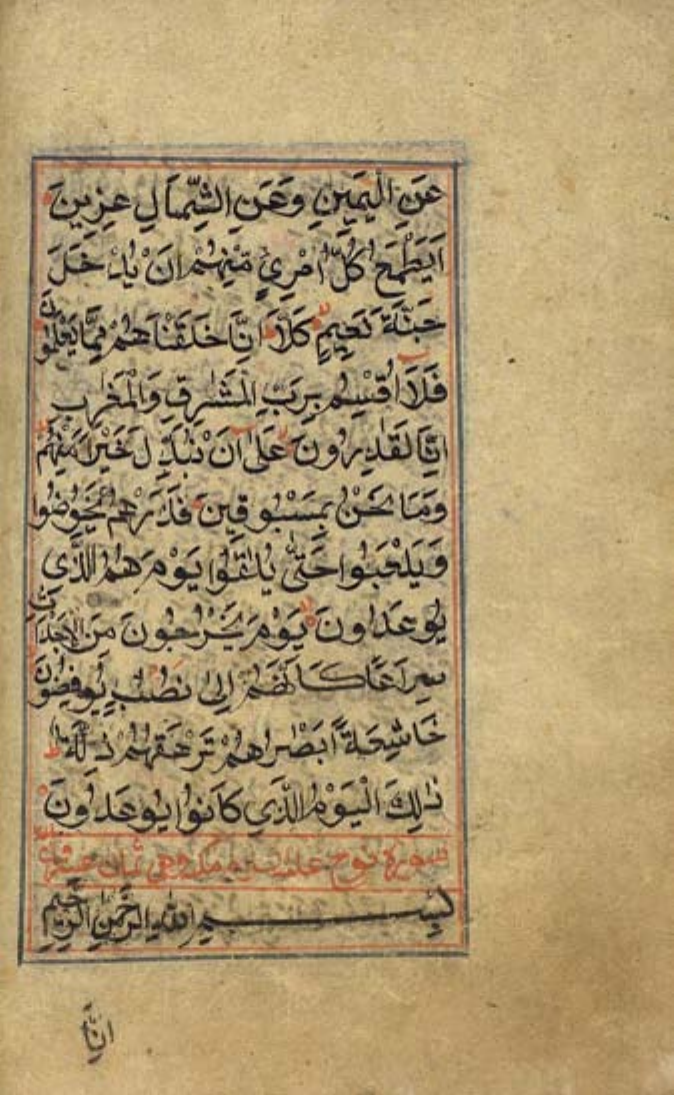 عَنِ الْيَمِينِ وَعَنِ الشِّمَالِ عِزِينَ
اَيَطْمَعُ كُلُّ امْرِئٍ مِّنْهُمْ اَنْ يُدْخَلَ
جَنَّةَ نَعِيمٍ كَلَّا اِنَّا خَلَقْنَاهُمْ مِمَّا يَعْلَمُونَ
فَلَا اُقْسِمُ بِرَبِّ الْمَشٰرِقِ وَالْمَغٰرِبِ
اِنَّا لَقٰدِرُونَ عَلٰى اَنْ نُبَدِّلَ خَيْرًا مِنْهُمْ
وَمَا نَحْنُ بِمَسْبُوقِينَ فَذَرْهُمْ يَخُوضُوا
وَيَلْعَبُوا حَتّٰى يُلٰقُوا يَوْمَهُمُ الَّذِي
يُوعَدُونَ يَوْمَ يَخْرُجُونَ مِنَ الْاَجْدَاثِ
سِرَاعًا كَاَنَّهُمْ اِلٰى نُصُبٍ يُوفِضُونَ
خَاشِعَةً اَبْصٰرُهُمْ تَرْهَقُهُمْ ذِلَّةٌ
ذٰلِكَ الْيَوْمُ الَّذِي كَانُوا يُوعَدُونَ
سورة نوح عليه السلام مكية وهي ثمان وعشرون
بِسْمِ اللّٰهِ الرَّحْمٰنِ الرَّحِيمِ
اِنَّا